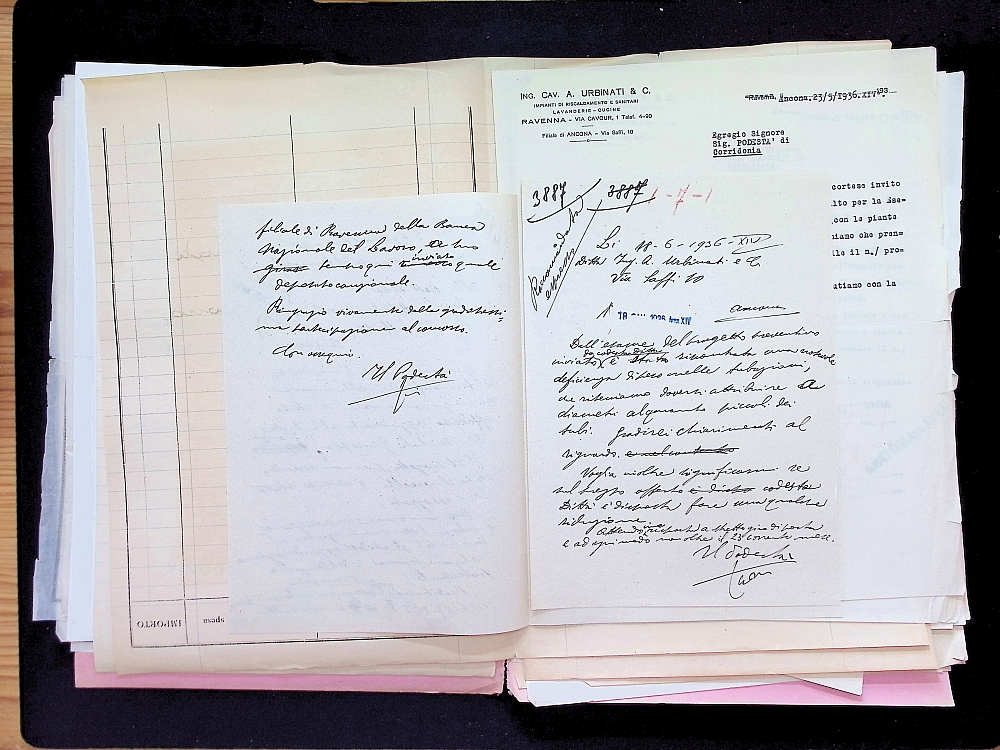 filiale di Ravenna della Banca
Nazionale del Lavoro,
tenho qui inviato quale
deposito cauzionale.
Ringrazio vivamente della
partecipazione al concorso.
Con ossequi.
Il Podestà
IMPORTO
spesa
ING. CAV. A. URBINATI & C.
IMPIANTI DI RISCALDAMENTO E SANITARI
LAVANDERIE - CUCINE
RAVENNA - VIA CAVOUR, 1 Telef. 4-90
Filiale di ANCONA - Via Saffi, 10
Ravenna, Ancona,23/5/1936.XIV°. 193
Egregio Signore
Sig. PODESTA' di
Corridonia
cortese invito
lto per la Ese-
con le piante
iamo che pren-
le il n./ pro-
utiamo con la
3887
3887
1-7-1
Raccomandata
espresso
Li 18-6-1936-XIV
Ditta Ing. A. Urbinati e C.
Via Saffi 10
Ancona
18 1936 Anno XIV
Dall'esame del progetto esecutivo
inviato da codesta Ditta è stata riscontrata una notevole
deficienza di peso nelle tubazioni,
che riteniamo doversi attribuire a
diametri alquanto piccoli dei
tubi. Gradirei chiarimenti al
riguardo.
Voglia inoltre significarmi se
sul prezzo offerto codesta
Ditta è disposta fare una qualche
riduzione.
Attendo risposta a stretto giro di posta
e ad ogni modo non oltre il 23 corrente mese.
Il Podestà